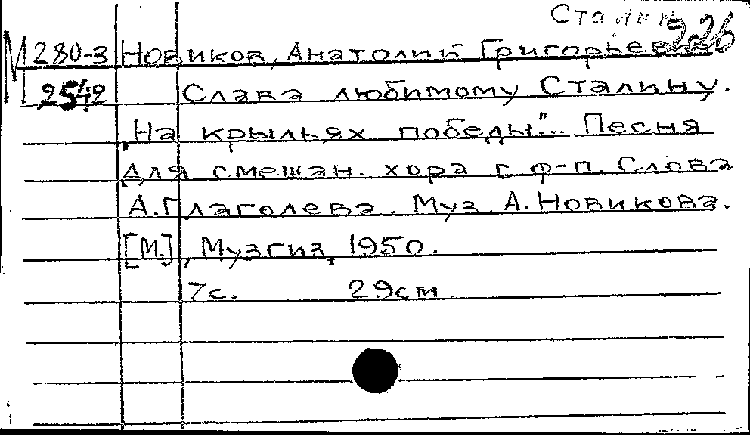 Сталин 226
М 280-3 Новиков, Анатолий Григорьевич
2542 Слава любимому Сталину.
"На крыльях победы"... Песня
для смешан. хора с ф-п. Слова
А.Глаголева. Муз А.Новикова.
[М.], Музгиз, 1950.
7с. 29см